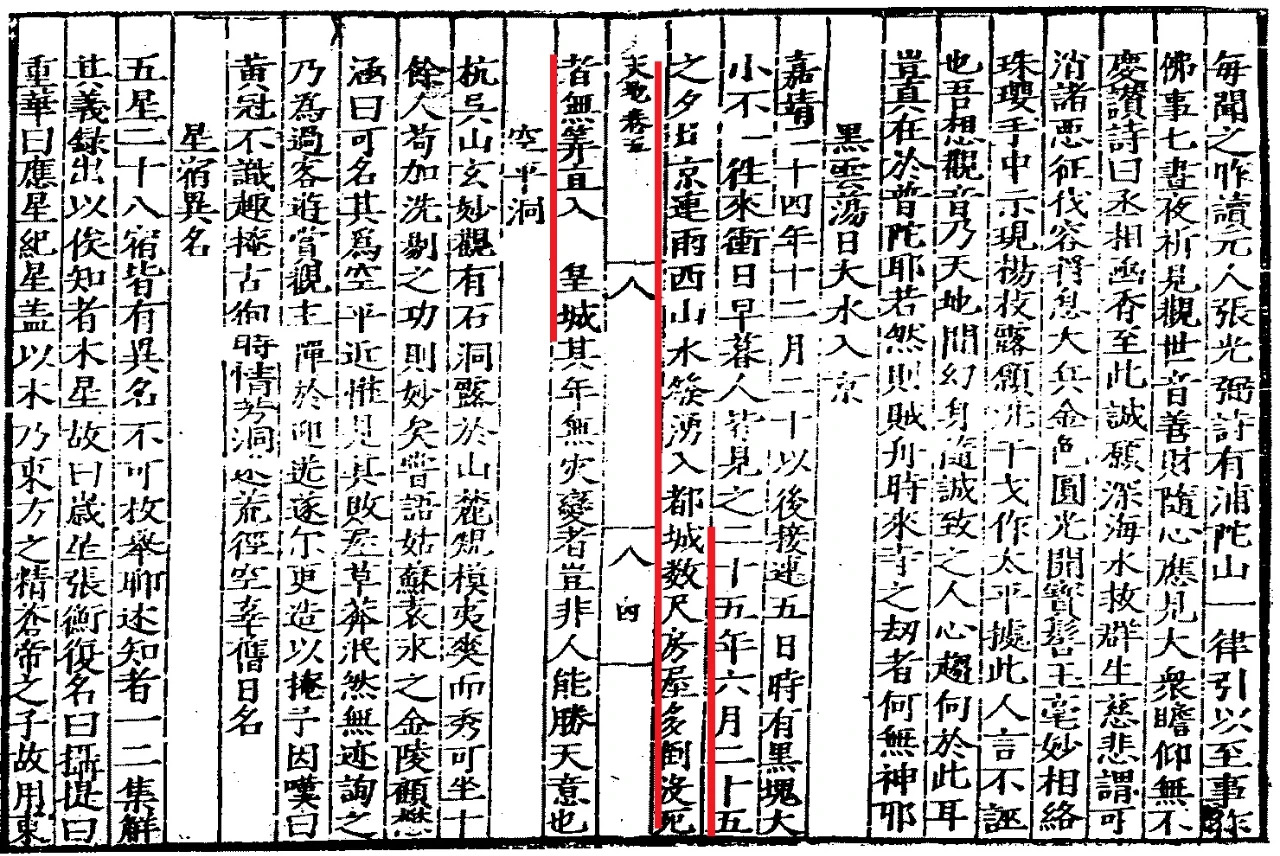 毎聞之昨讀元人張光弼詩有浦陀山一律引以至事
佛事七晝夜祈見觀世音善財隨心應見大衆瞻仰無不
慶讚詩曰丞相函香至此誠願深海水救群生慈悲謂可
消諸惡征伐容得息大兵金色圓光開寶髻玉毫妙相絡
珠瓔手中示現楊枝露願洗干戈作太平據此人言不誣
也吾想觀音乃天地間幻身隨誠致之人心趨向於此耳
豈真在於普陀耶若然則賊舟時來寺之刼者何無神耶
黑雲蕩日大水入京
嘉靖二十四年十二月二十以後接連五日時有黑塊大
小不一徃來衝日早暮人皆見之二十五年六月二十五
之夕出京連雨西山水發湧入都城数尺房屋多倒没死
天地卷五 八 八 四
者無筭直入 皇城其年無灾變者豈非人能勝天意也
空平洞
杭吳山玄妙觀有石洞露於山麓規模夷爽而秀可坐十
餘人苟加洗剔之功則妙矣嘗語姑蘇袁永之金陵顧懋
涵曰可名其爲空平近惟見其敗屋草莽泯然無迹詢之
乃爲過客遊賞觀主憚於迎迓遂尔更造以掩予因嘆曰
黃冠不識趣掩古徇時情芳洞迷荒徑空幸舊日名
星宿異名
五星二十八宿皆有異名不可枚舉聊述知者一二集解
其義録出以俟知者木星故曰歲星張衡復名曰攝提曰
重華曰應星紀星蓋以木乃東方之精蒼帝之子故用東